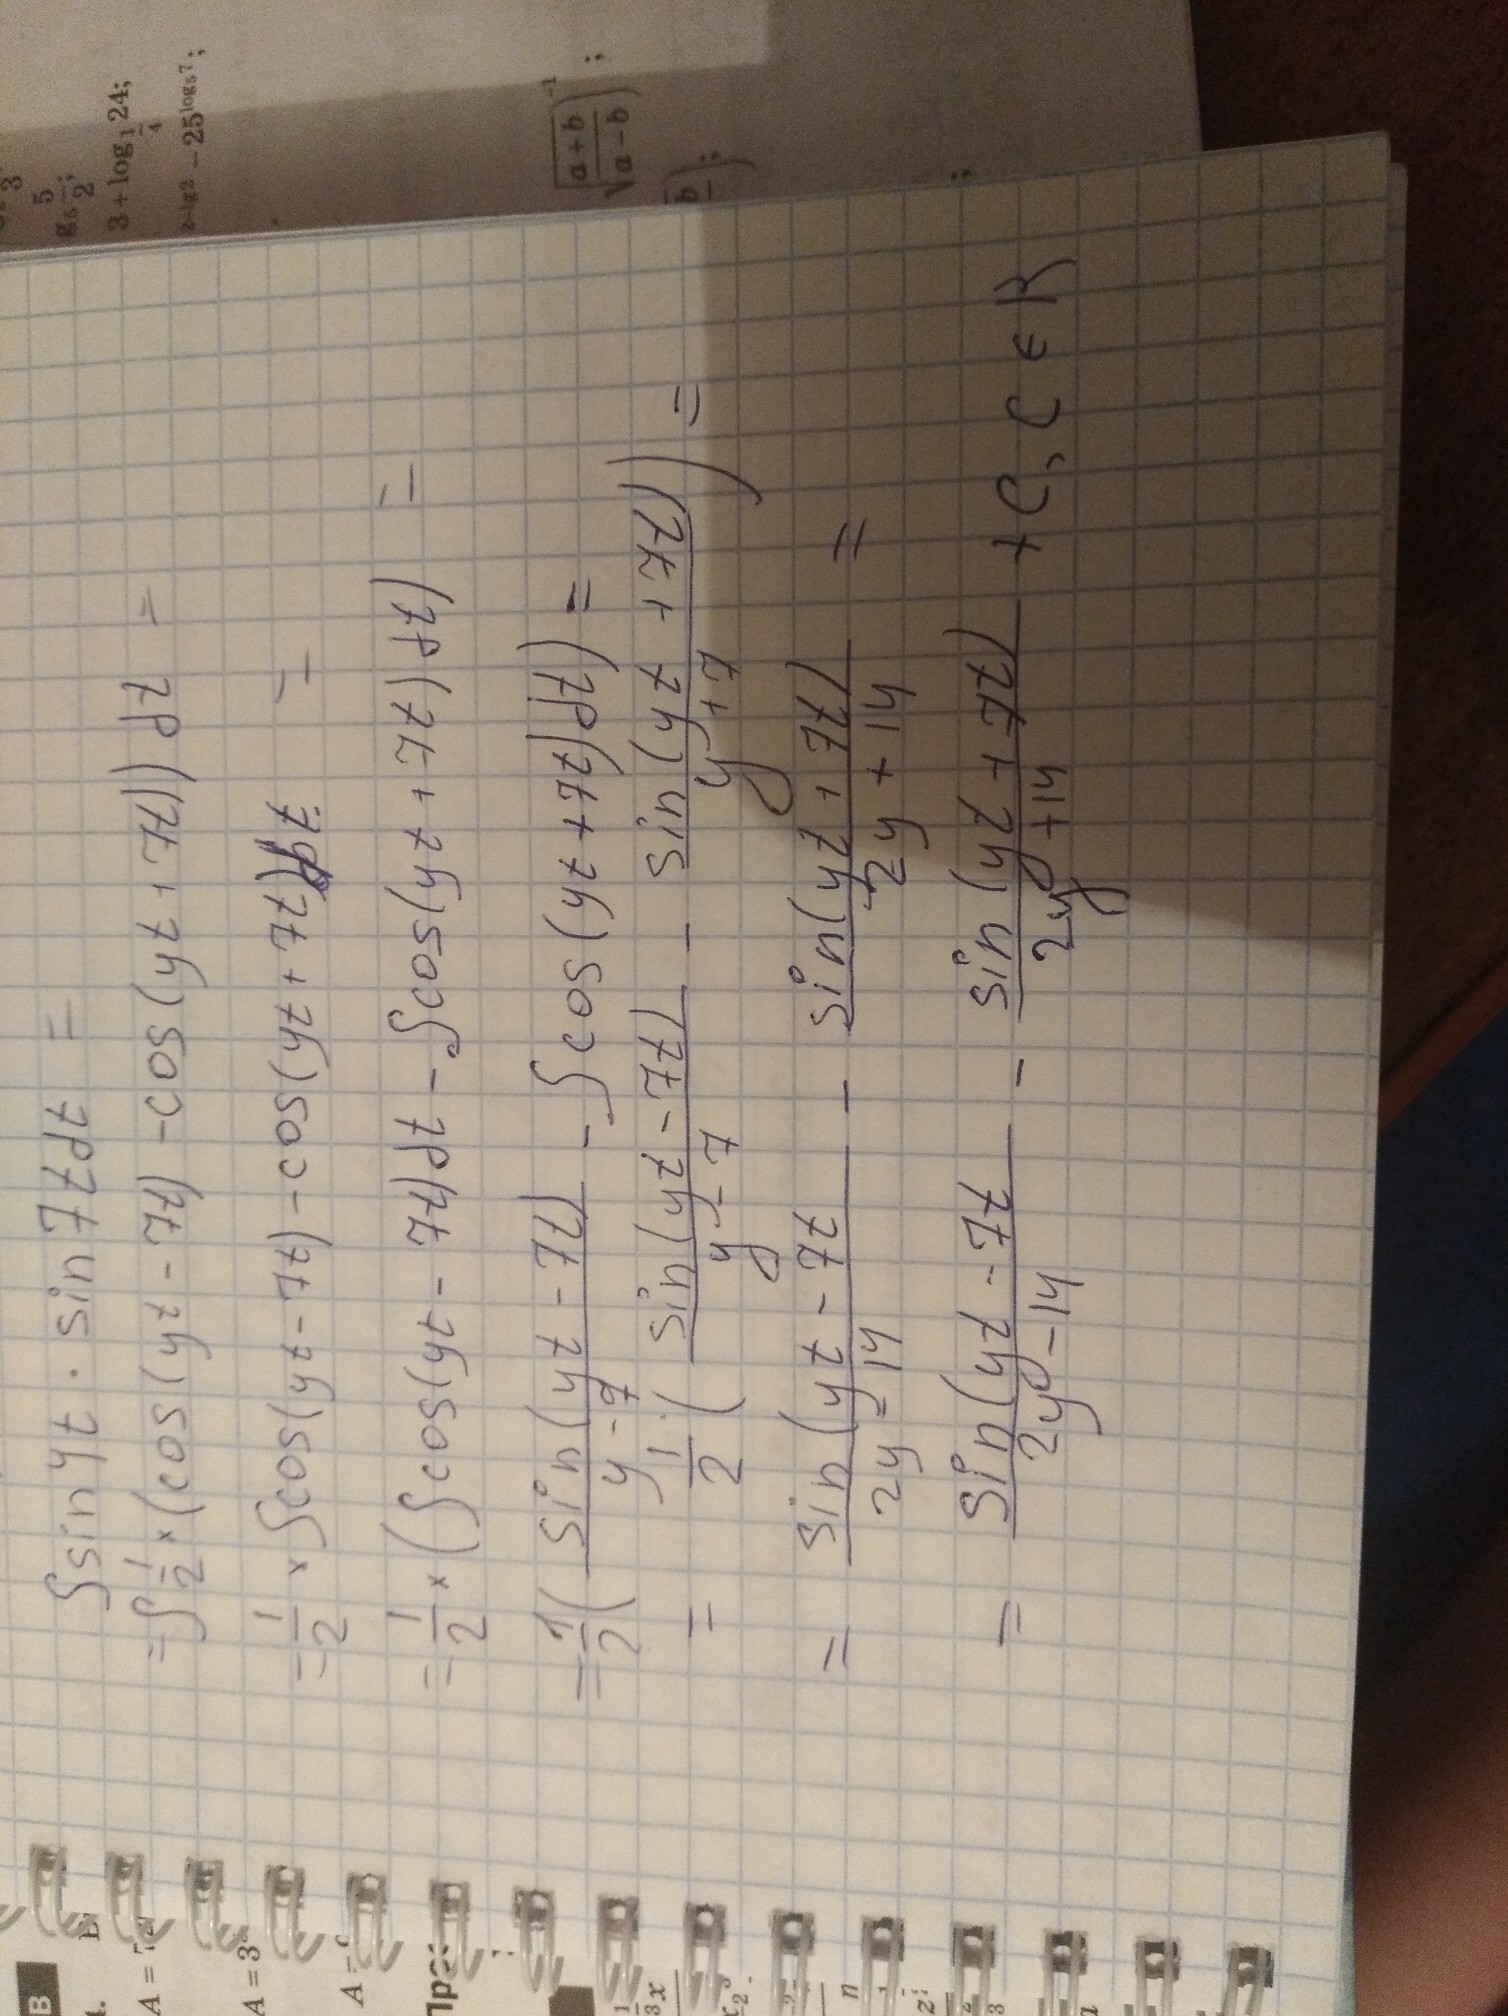 ∫sin yt · sin 7t dt =
= ∫ 1/2 × (cos(yt - 7t) - cos(yt + 7t)) dt =
= 1/2 × ∫cos(yt - 7t) - cos(yt + 7t) dt =
= 1/2 × (∫cos(yt - 7t)dt - ∫cos(yt + 7t) dt) =
= 1/2 ( sin(yt - 7t)/y - 7 - ∫cos(yt + 7t)dt) =
= 1/2 · ( sin(yt - 7t)/y - 7 - sin(yt + 7t)/y + 7 ) =
= sin(yt - 7t/2y = 14 - sin(yt + 7t)/2y + 14 =
= sin(yt - 7t/2y - 14 - sin(yt + 7t)/2y + 14 + C, C ∈ R
3 + log 1/4 24;
2-lg2 - 25^log₅7;
(√a + b/a - b)^-1 ;
B
A = 3
A =